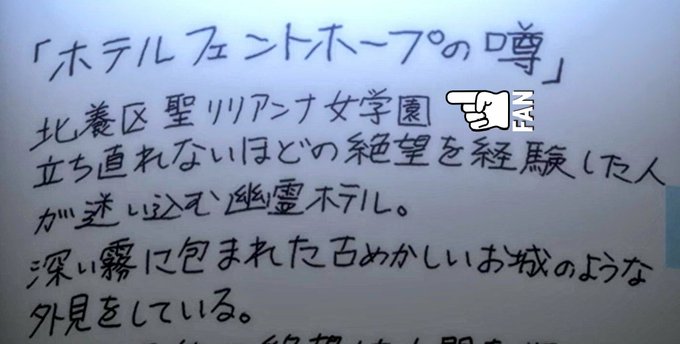 「ホテルフェントホープの噂」
北養区聖リリアンナ女学園
FAN
立ち直れないほどの絶望を経験した人
が迷い込む幽霊ホテル。
深い霧に包まれた古めかしいお城のような
外見をしている。